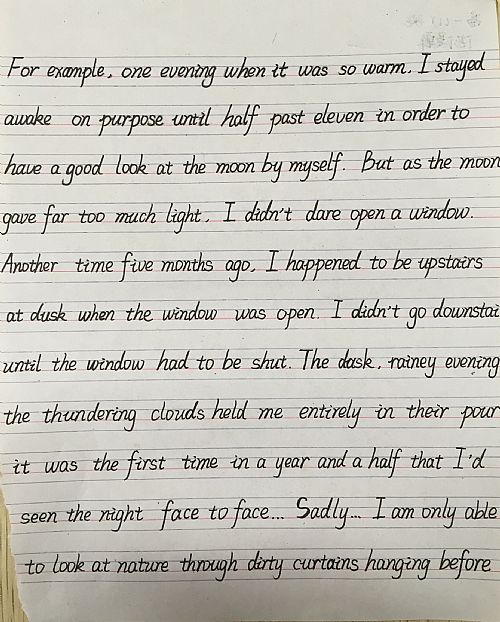 For example, one evening when it was so warm, I stayed
awake on purpose until half past eleven in order to
have a good look at the moon by myself. But as the moon
gave far too much light, I didn't dare open a window.
Another time five months ago, I happened to be upstairs
at dusk when the window was open. I didn't go downstai
until the window had to be shut. The dask, rainey evening
the thundering clouds held me entirely in their pour
it was the first time in a year and a half that I'd
seen the night face to face... Sadly... I am only able
to look at nature through dirty curtains hanging before